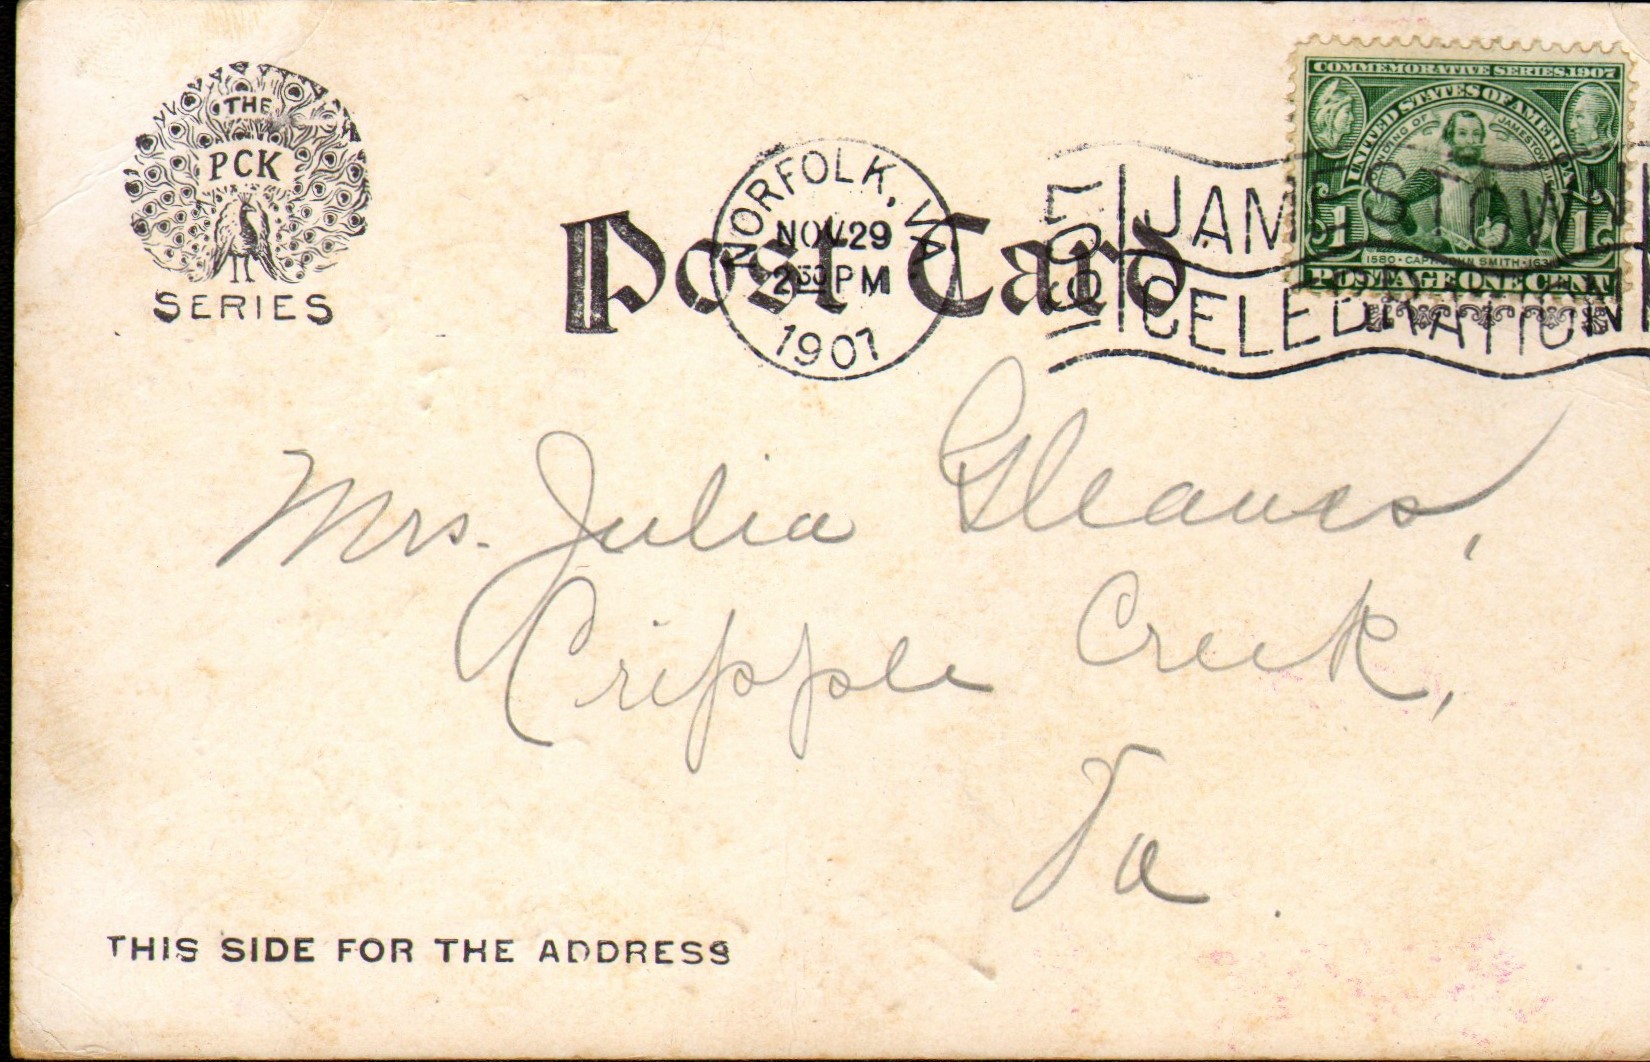 THE
PCK
SERIES
Post Card
NORFOLK, VA
NOV 29
2 30 PM
1907
JAMESTOWN
CELEBRATION
COMMEMORATIVE SERIES, 1907
UNITED STATES OF AMERICA
FOUNDING OF JAMESTOWN
1 1
1580 · CAPT. JOHN SMITH · 1631
POSTAGE ONE CENT
Mrs. Julia Gleaves,
Cripple Creek,
Va.
THIS SIDE FOR THE ADDRESS